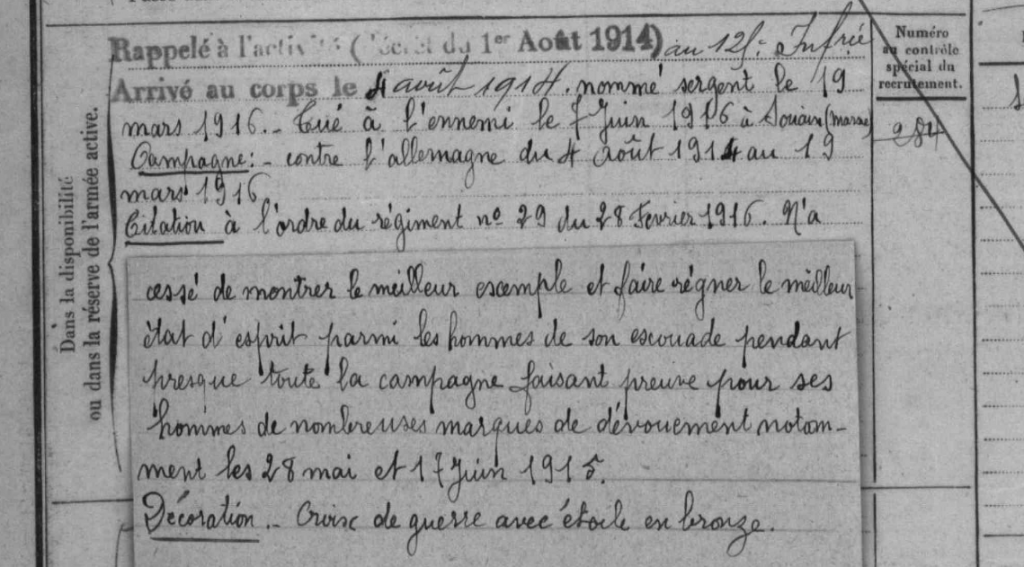 Rappelé à l'activité (Décret du 1er Août 1914) au 125e Infrie
Arrivé au corps le 4 août 1914. nommé sergent le 19
mars 1916. - Tué à l'ennemi le 7 Juin 1916 à Souain (marne)
Campagne: - contre l'allemagne du 4 août 1914 au 19
mars 1916.
Citation à l'ordre du régiment nº 29 du 28 Fevrier 1916. N'a
cessé de montrer le meilleur exemple et faire régner le meilleur
état d'esprit parmi les hommes de son escouade pendant
presque toute la campagne faisant preuve pour ses
hommes de nombreuses marques de dévouement notam-
ment les 28 mai et 17 Juin 1915.
Décoration. - Croix de guerre avec étoile en bronze.
Dans la disponibilité
ou dans la réserve de l'armée active.
Numéro
au contrôle
spécial du
recrutement.
984